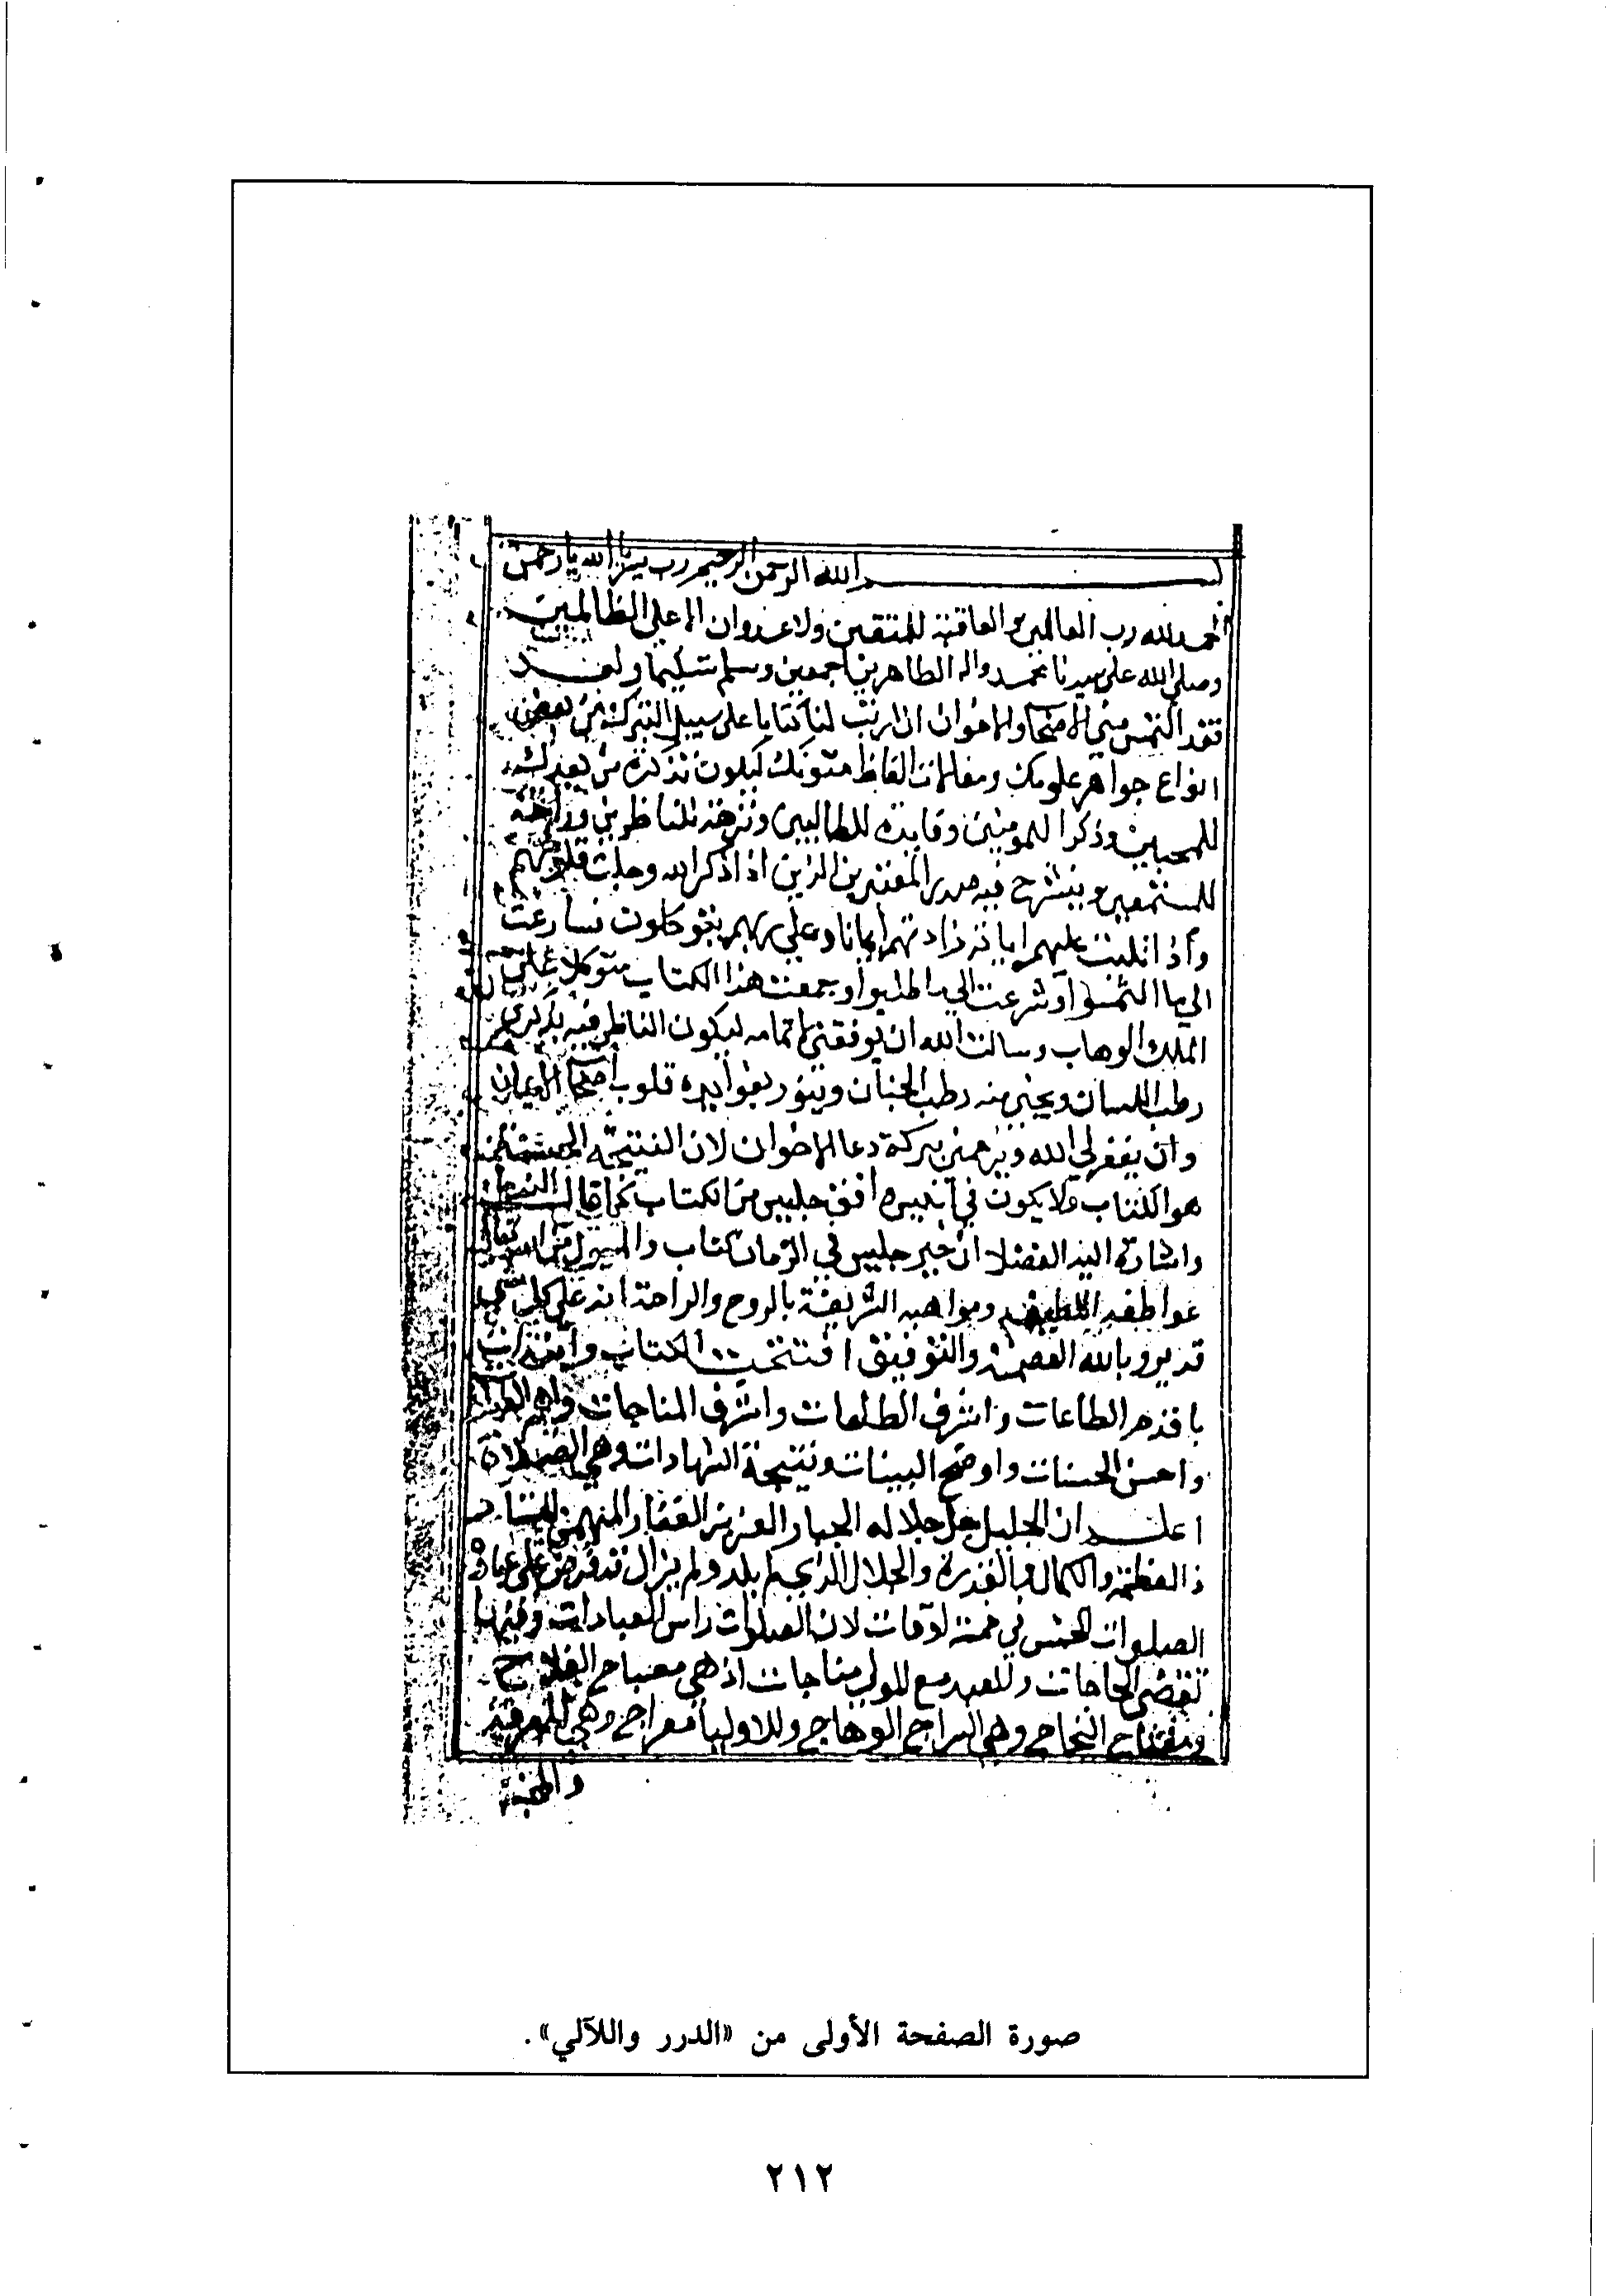 بسم الله الرحمن الرحيم رب يسر يا الله يا رحمن
الحمد لله رب العالمين والعاقبة للمتقين ولا عدوان الا على الظالمين
وصلى الله على سيدنا محمد واله الطاهرين اجمعين وسلم تسليما وبعد
فقد التمس مني الاصحاب والاخوان ان ارتب لنا كتابا على سبيل التبرك من بعض
انواع جواهر علومك الفاظ ليكون تذكرة من بعدك
للمحبين وذكرا للمومنين وفايدة للطالبين ونزهة للناظرين
للمستمعين وينشرح فيه صدر الذين اذا ذكر الله وجلت قلوبهم
واذا تليت عليهم اياته زادتهم ايمانا وعلى ربهم يتوكلون فسارعت
الى ما التمسوا وشرعت الى ما طلبوا وجمعت هذا الكتاب متوكلا على
الملك الوهاب وسالت الله ان يوفقني لاتمامه ليكون الناظر فيه
رطب اللسان ويجني منه رطب الجنان وينور بفوايده قلوب اصحاب الايمان
وان يغفر لي الله ويرحمني ببركة دعا الاخوان لان النتيجة
هو الكتاب ولا يكون في جليس من الكتاب كما قال
واشارة اليه الفضلا ان خير جليس في الزمان كتاب والمسول من الله تعالى
عواطفه ومواهبه الشريفة بالروح والراحة انه على كل شي
قدير وبالله العصمة والتوفيق افتتحت الكتاب
الطاعات واشرف واشرف المناجات
واحسن الحسنات واوضح البينات ونتيجة الشهادات وهي الصلاة
اعلم ان الجليل جل جلاله الجبار العزيز الغفار
ذا العظمة والكمال والقدرة والجلال الذي لم يلد ولم يزال قد فرض على عباده
الصلوات الخمس في خمسة اوقات لان الصلوات راس العبادات وفيها
تقضى الحاجات وللعبد مع المولى مناجات اذ هي مصباح الفلاح
ومفتاح النجاح وهي السراج الوهاج وللاوليا معراج وهي للمعرفة
والمحبة
صورة الصفحة الأولى من «الدرر واللآلي».
٢١٢